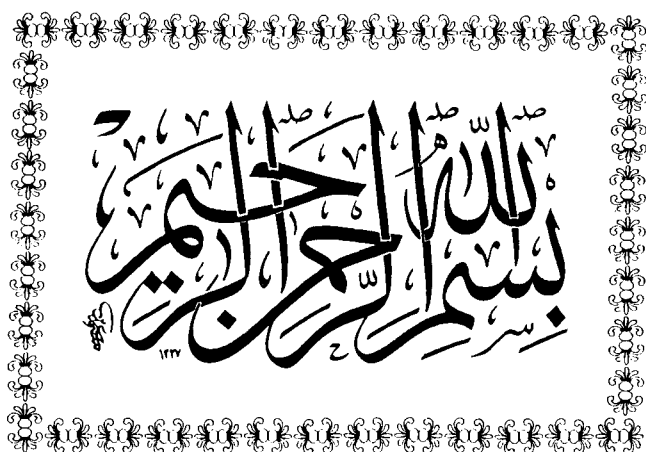 بِسْمِ اللهِ الرَّحْمٰنِ الرَّحِيمِ
١٢٣٧